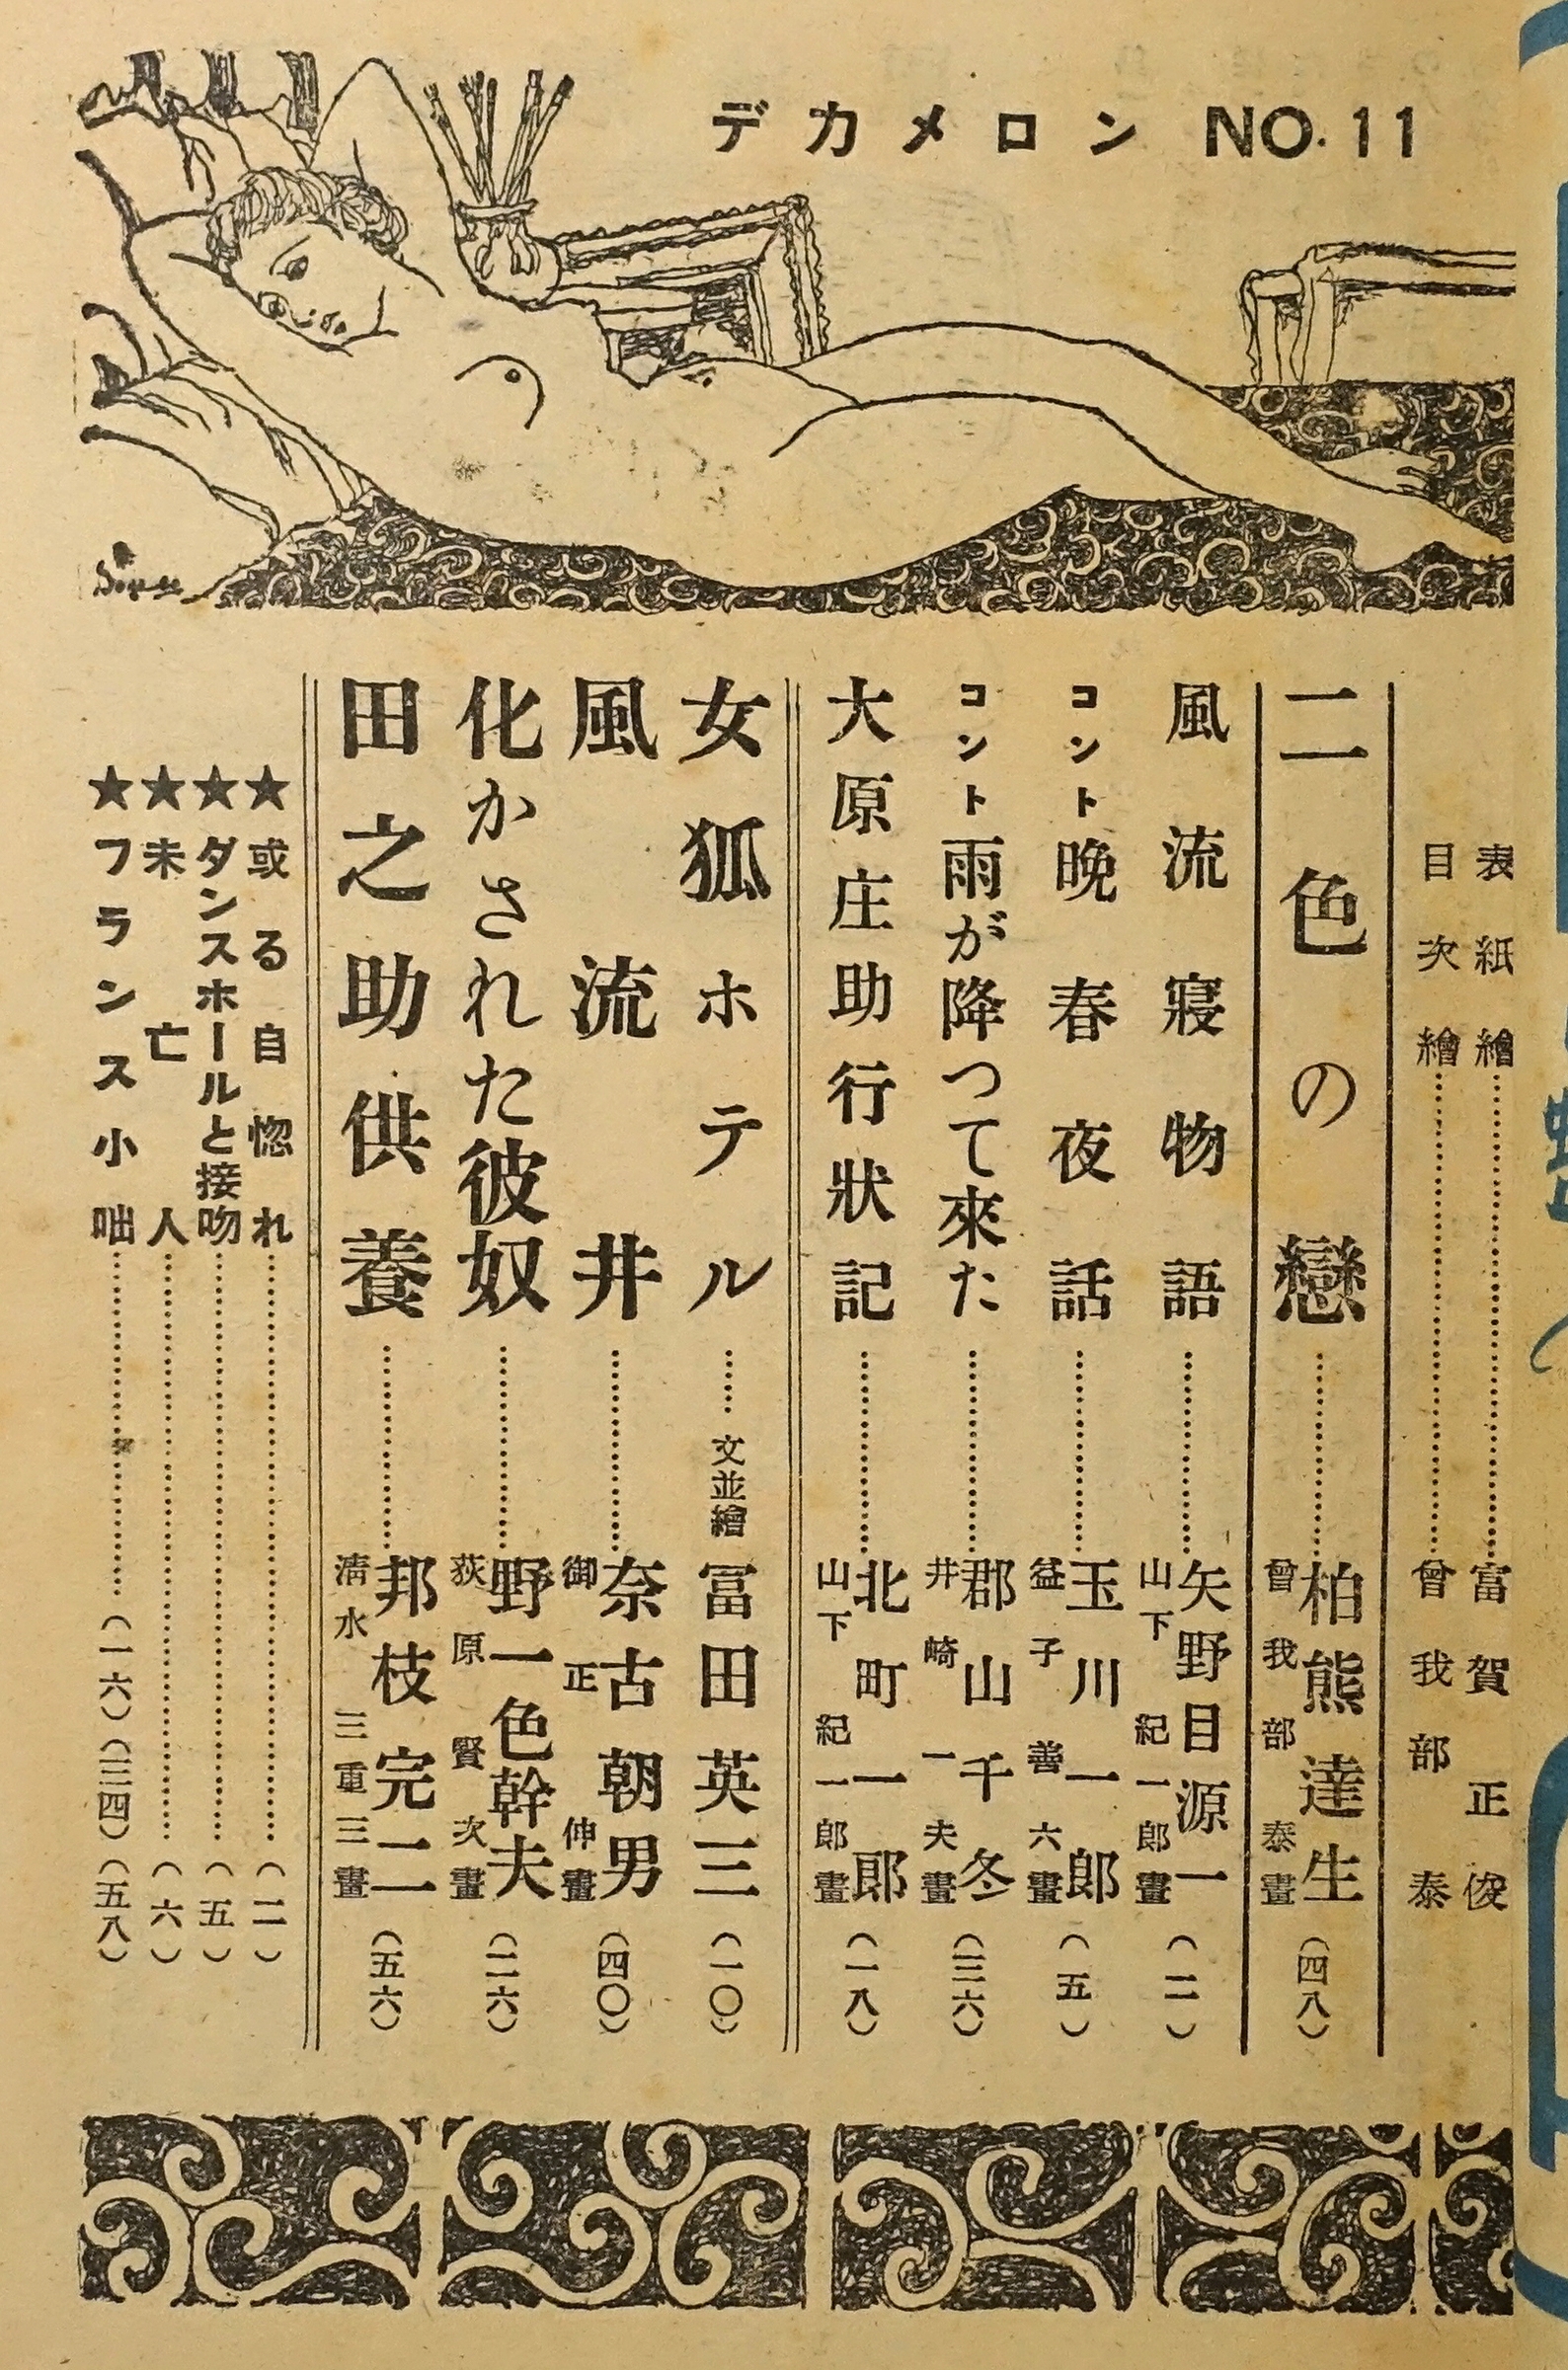 デカメロン NO.11
表紙繪…………富賀正俊
目次繪…………曾我部泰
二色の戀…………柏熊達生（四八）
曾我部泰畫
風流寢物語…………矢野目源一（二）
山下紀一郎畫
コント晩春夜話…………玉川一郎（五）
益子善六畫
コント雨が降つて來た…………郡山千冬（三六）
井崎一夫畫
大原庄助行狀記…………北町一郎（一八）
山下紀一郎畫
女狐ホテル……文並繪 冨田英三（一〇）
風流井…………奈古朝男（四〇）
御正伸畫
化かされた彼奴…………野一色幹夫（二六）
荻原賢次畫
田之助供養…………邦枝完二（五六）
淸水三重三畫
★或る自惚れ…………（二）
★ダンスホールと接吻…………（五）
★未亡人…………（六）
★フランス小咄…………（一六）（三四）（五八）